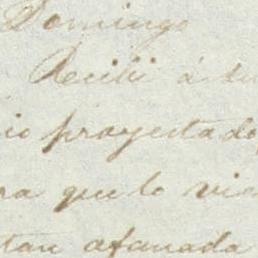 Domingo
Recibí á su
io proyectado,
ra que lo vie
tan afanada